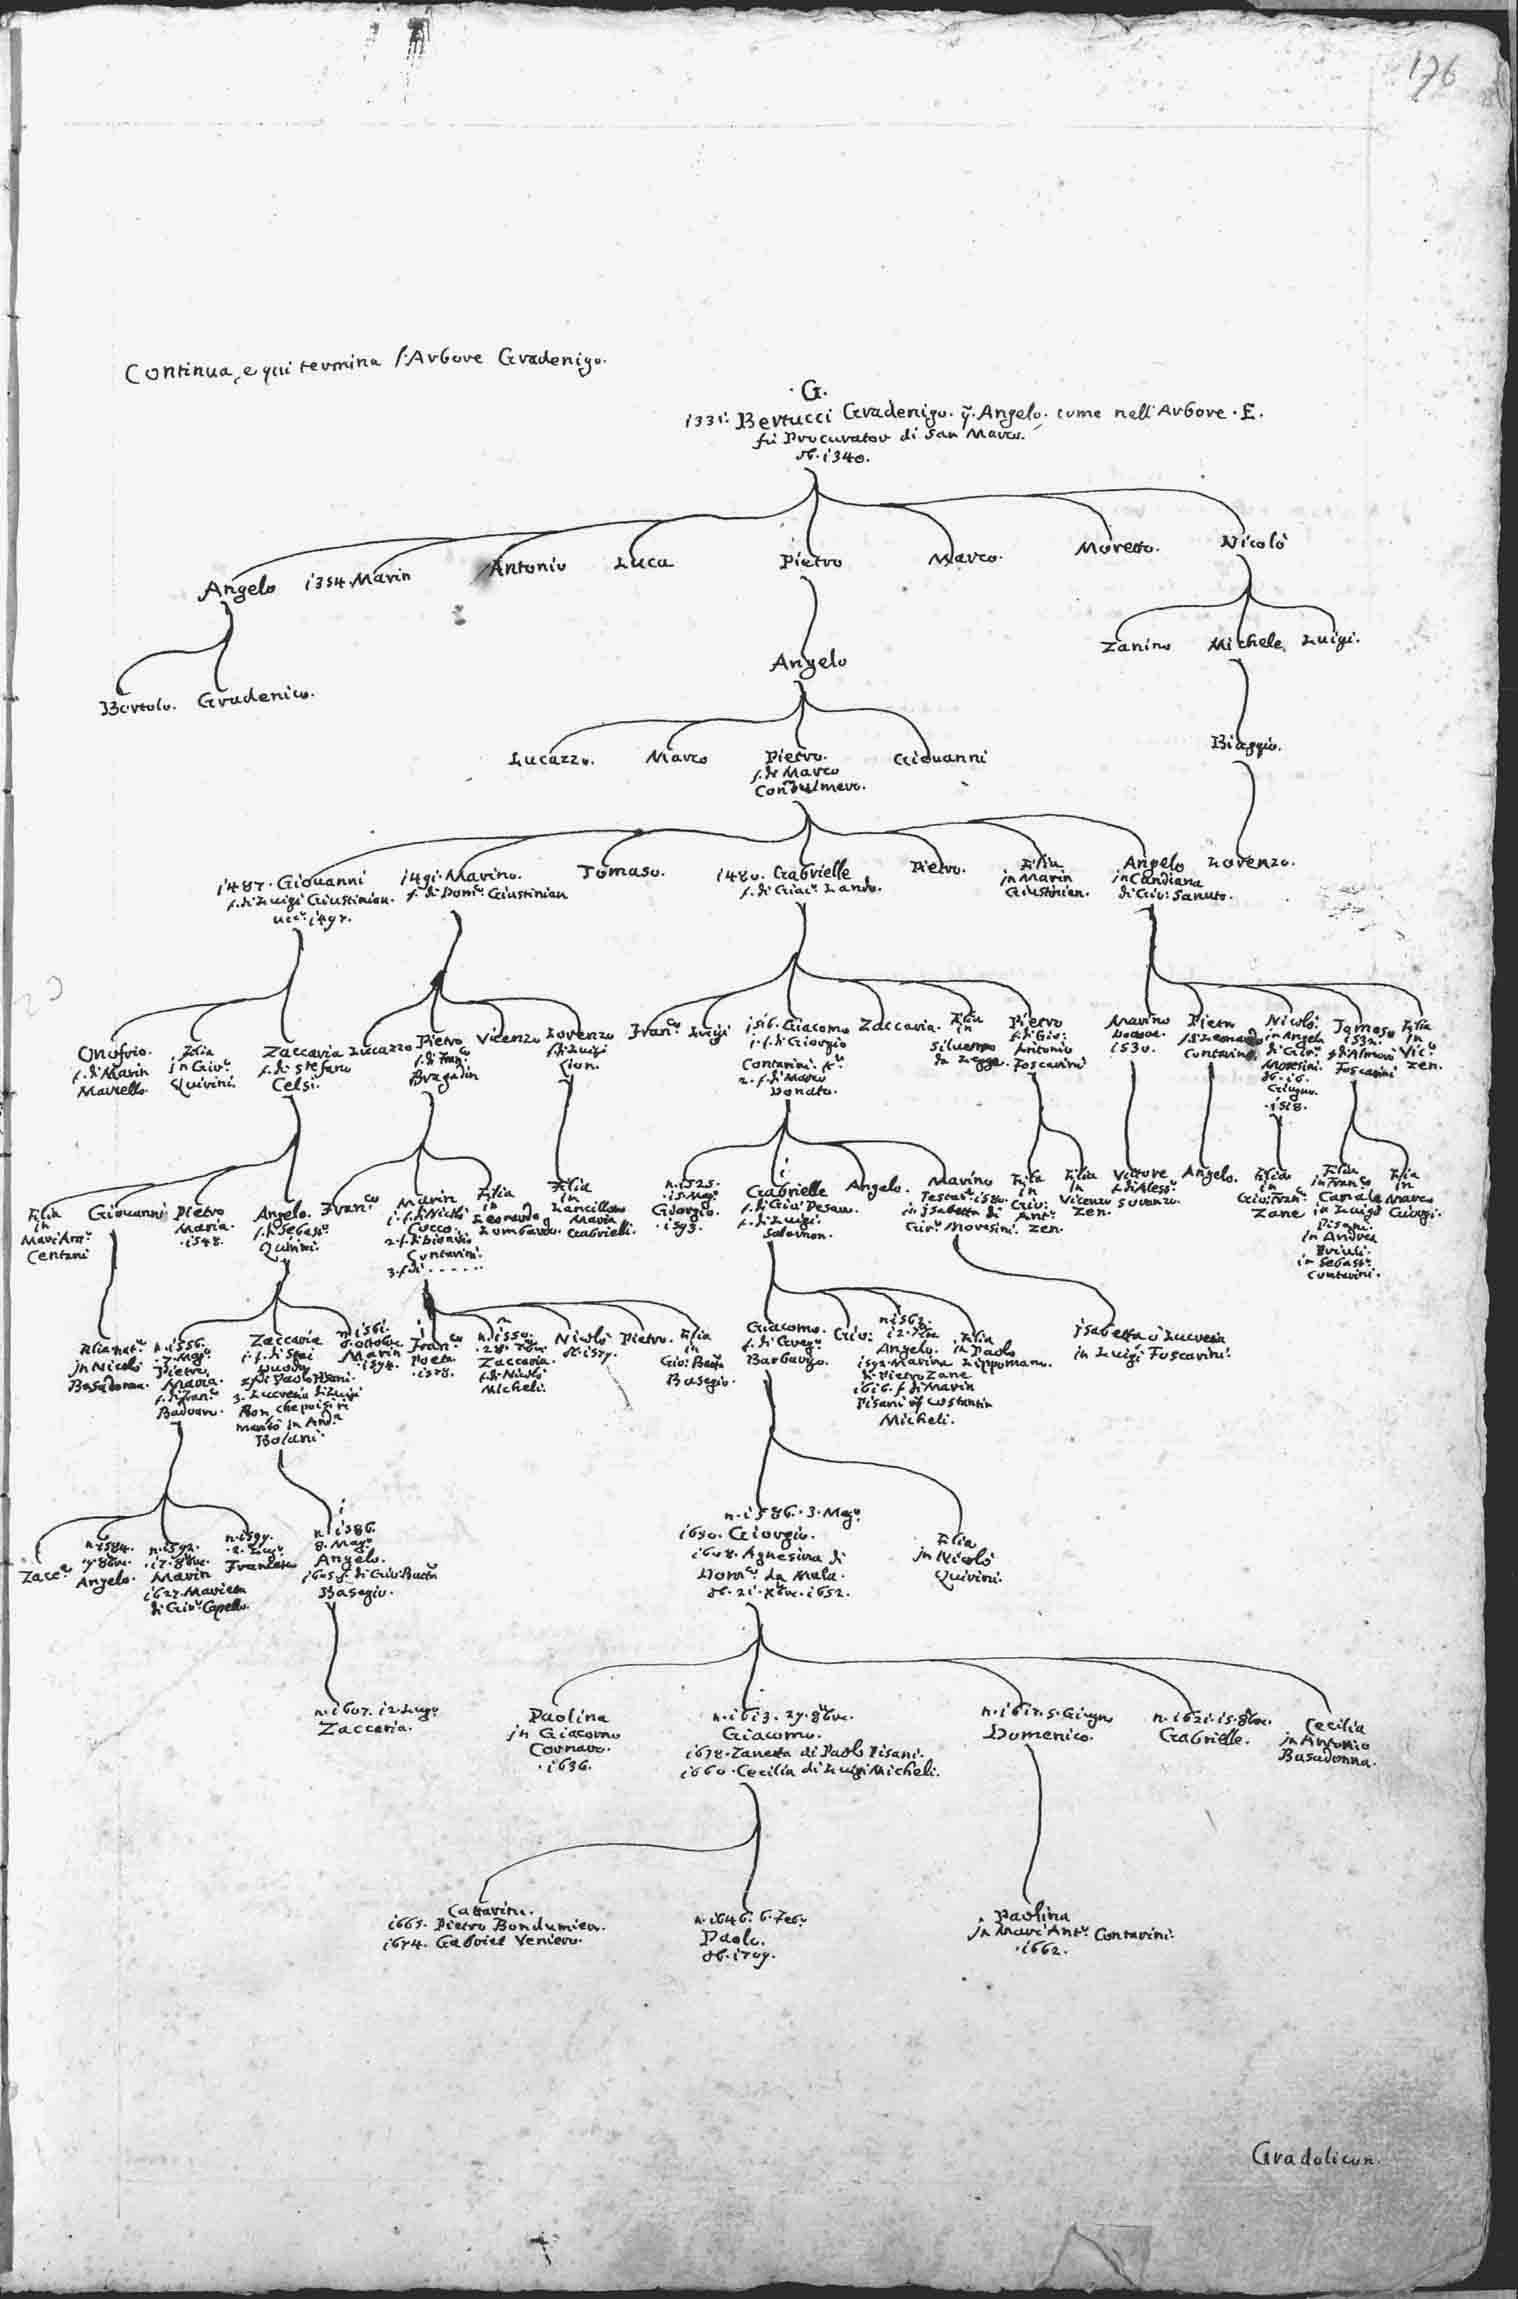 176
Continua, e qui termina l'Arbore Gradenigo.
·G·
1331: Bertucci Gradenigo. q. Angelo, come nell'Arbore ·E.
fù Procurator di San Marco.
ob. 1340.
Angelo
1354. Marin
Antonio
Luca
Pietro
Marco.
Moretto.
Nicolò
Bortolo. Gradenico.
Angelo
Zanino Michele, Luigi.
Lucazzo. Marco
Pietro.
f. di Marco
Condulmero.
Giovanni
Biaggio.
1487. Giovanni
f. di Luigi Giustinian.
1491. Marino.
f. di Dom.co Giustinian
Tomaso.
1480. Gabrielle
f. di Giac.o Lando.
Pietro.
Filia
in Marin
Giustinian.
Angelo
in Candiana
di Gio: Sanuto.
Lorenzo.
Onofrio.
f. di Marin
Marcello
Filia
in Gir.o
Quirini.
Zaccaria
f. di Stefano
Celsi.
Lucazzo
Pietro
f. di Fran.co
Bragadin
Vicenzo
Lorenzo
f. di Luigi
Lion.
Fran.co
Luigi
1516. Giacomo
1. f. di Giorgio
Contarini. K.r
2. f. di Marco
Donato.
Zaccaria.
Filia
in
Silvestro
da Legge.
Pietro
f. di Gio:
Antonio
Foscarini
Marino
1530.
Pietro
f. di Leonardo
Contarini.
Nicolò
in Angela
di Gir.o
Moresini.
ob. 16.
Giugno.
·1518.
Tomaso
1532.
f. di Almorò
Foscarini
Filia
in
Vic.o
Zen.
Filia
in
Marc'Ant.o
Centani
Giovanni
Pietro
Maria.
·1548.
Angelo.
f. di Sebast.o
Quirini.
Fran.co
Marin
1. f. di Nicolò
Cocco.
2. f. di Dionisio
Contarini.
3. f. di ......
Filia
in
Leonardo
Lombardo.
Filia
in
Lancillotto
Maria
Gabrielli.
n. 1525.
·15 Mag.o
Giorgio.
·1593.
Gabrielle
f. di Luigi.
Salamon.
Angelo.
Marino
Testar. 1580.
in Isabetta di
Gir.o Moresini.
Filia
in
Gio:
Ant.o
Zen.
Filia
in
Vicenzo
Zen.
Vettore
f. di Aless.o
Soranzo.
Angelo.
Filia
in
Gio: Fran.co
Zane
Filia
in Fran.co
Canale
in Luigi
Pisani.
in Andrea
Priuli.
in Sebast.o
Contarini.
Filia
in
Marco
Giorgi.
Filia nat.
in Nicolò
Basadonna.
n. 1556.
·7. Mag.o
Pietro
Maria.
f. di Fran.co
Badoer.
Zaccaria
2. f. di Paolo Pisani.
3. Lucrezia di Luigi
Bon, che poi si ri
maritò in And.a
Bolani.
n. 1561.
6. ottobre
Marin
·1594.
Fran.co
Poeta.
·1578.
n. 1550.
Zaccaria.
f. di Nicolò
Micheli.
Nicolò
ob. 1577.
Pietro.
Filia
in
Gio: Batta
Basegio.
Giacomo.
f. di Greg.o
Barbarigo.
Gio:
Angelo.
1592. Marina
di Pietro Zane
1616. f. di Marin
Pisani q. Costantin
Micheli.
Filia
in Paolo
Lippomano.
Isabetta ò Lucrezia
in Luigi Foscarini.
Zacc.a
n. 1584.
Angelo.
n. 1592.
·17. 8bre.
Marin
1627. Marietta
di Gir.o Capello.
n. 1597.
Francesco
n. 1586.
8. Mag.o
Angelo.
1605. f. di Gio: Batta
Basegio.
n. 1586. 3. Mag.o
1650. Giorgio.
1608. Agnesina di
Dom.co da Mula.
ob. 21. Xbre. 1652.
Filia
in Nicolò
Quirini.
n. 1607. 12. Lugo
Zaccaria.
Paolina
in Giacomo
Cornaro.
·1636.
n. 1613. 27. 8bre.
Giacomo.
1638. Zanetta di Paolo Pisani.
1660. Cecilia di Luigi Micheli.
n. 1617. 5. Giugno
Domenico.
n. 1621. 15. 8bre.
Gabrielle.
Cecilia
in Antonio
Basadonna.
Cattarina.
1665. Pietro Bondumier.
1674. Gabriel Veniero.
n. 1646. 6. Feb.o
Paolo.
ob. 1709.
Paolina
in Marc'Ant.o Contarini.
·1662.
Gradolicon.